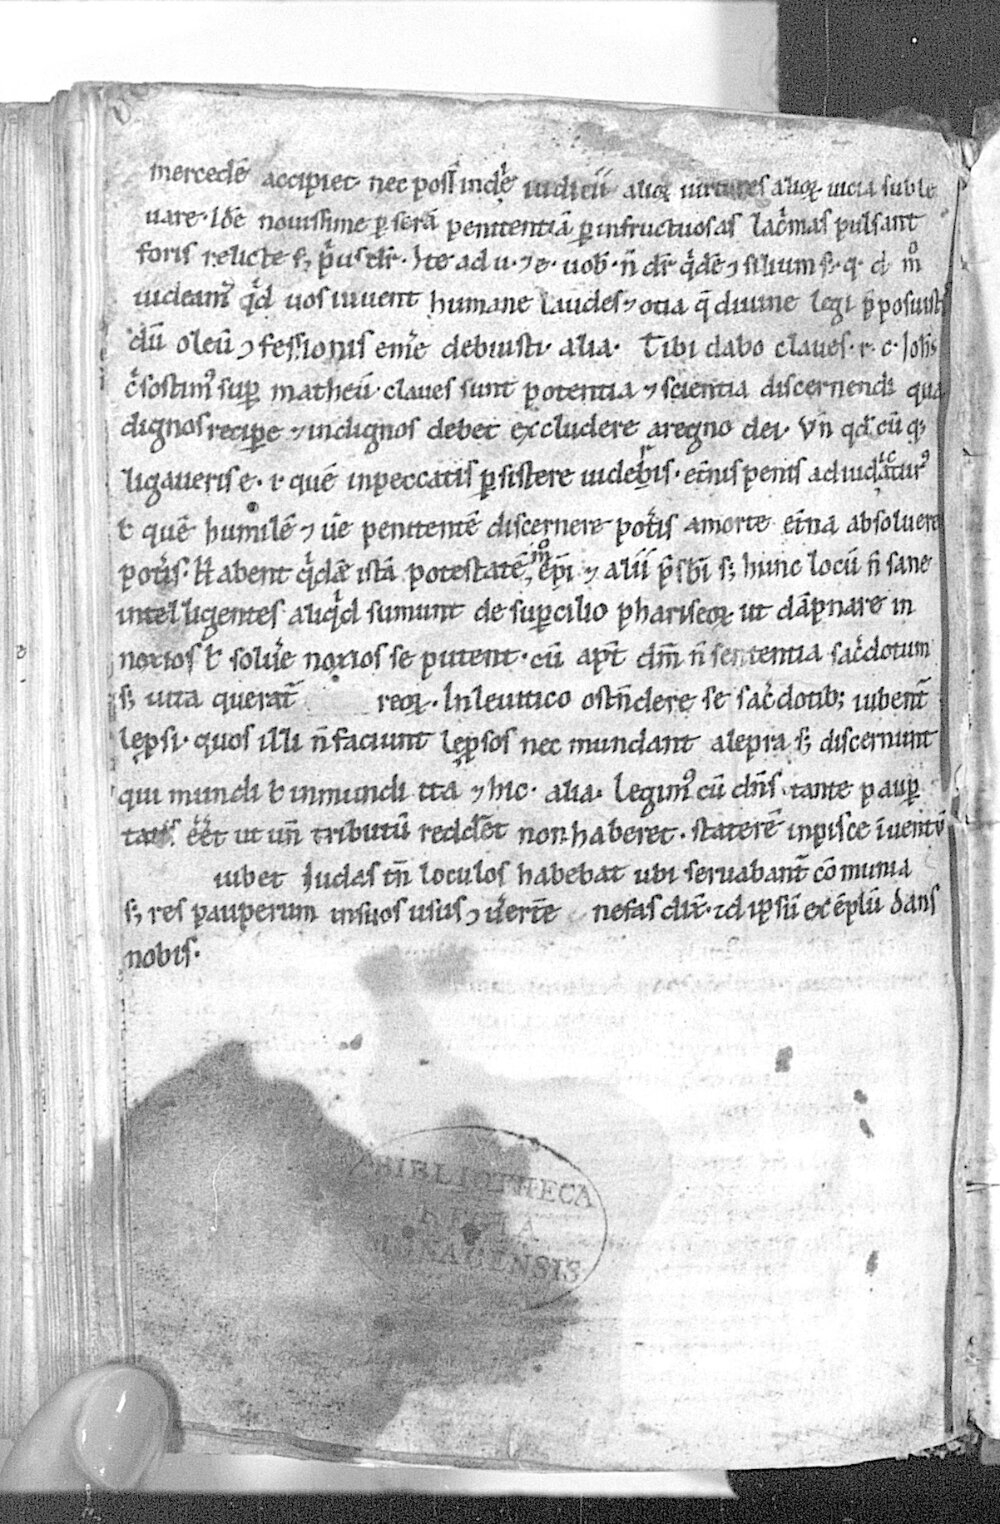 mercedē accipiet · nec poss̄ indͥe iudicii alioꝝ uirtutes alioꝝ · uicia suble
uare · Iđe nouissime ꝑ serā penitentiā ꝑ infructuosas lac̓mas pulsant
foris relicte
uos iuuent humane laudes ⁊ otia q̄ diuine legi p̄posuisti
dū oleū ꝯfessionis em̄e debuisti · alia · Tibi dabo claues · r · c · Ioh̄is
sup̱ matheū · claues sunt potentia ⁊ scientia discernendi qua
dignos recipe ⁊ indignos debet excludere aregno dei · Vn̄ qđ cū q;
ligaueris e · i · quē inpeccatis ꝑsistere uidebis · et̄nis penis
ł quē humilē ⁊ ūe penitentē discernere pot̓is amorte et̄na absoluere
pot̓is · Habent q̓dā istā potestatē, ep̄i ⁊ alii p̄sbī s; hunc locū n̄ sane
intelligentes aliq̓d sumunt de sup̱cilio phariseoꝝ ut dāpnare in
noxios ł solu̓e noxios se putent · cū ap̄t dm̄ n̄ sententia sac̓dotum
s; uita querat̄ reoꝝ · Inleuitico ostn̄dere se sac̓dotib; iubent̄
lepsi · quos illi n̄ faciunt lepsos nec mundant alepra s; discernunt
qui mundi ł inmundi ita ⁊ hic · alia · legim᷒ cū dn̄s tante paup̱
tatis ēet ut un̄ tributū reddēt non haberet · staterē inpisce īuentū
iubet Iudas tn̄ loculos habebat ubi seruabant̄ cōmunia
s; res pauperum insuos usus ꝯu̓ert̄e nefas dix̄ · id ipsū exēplū dans
nobis ·
BIBLIOTHECA
REGIA
MONACENSIS